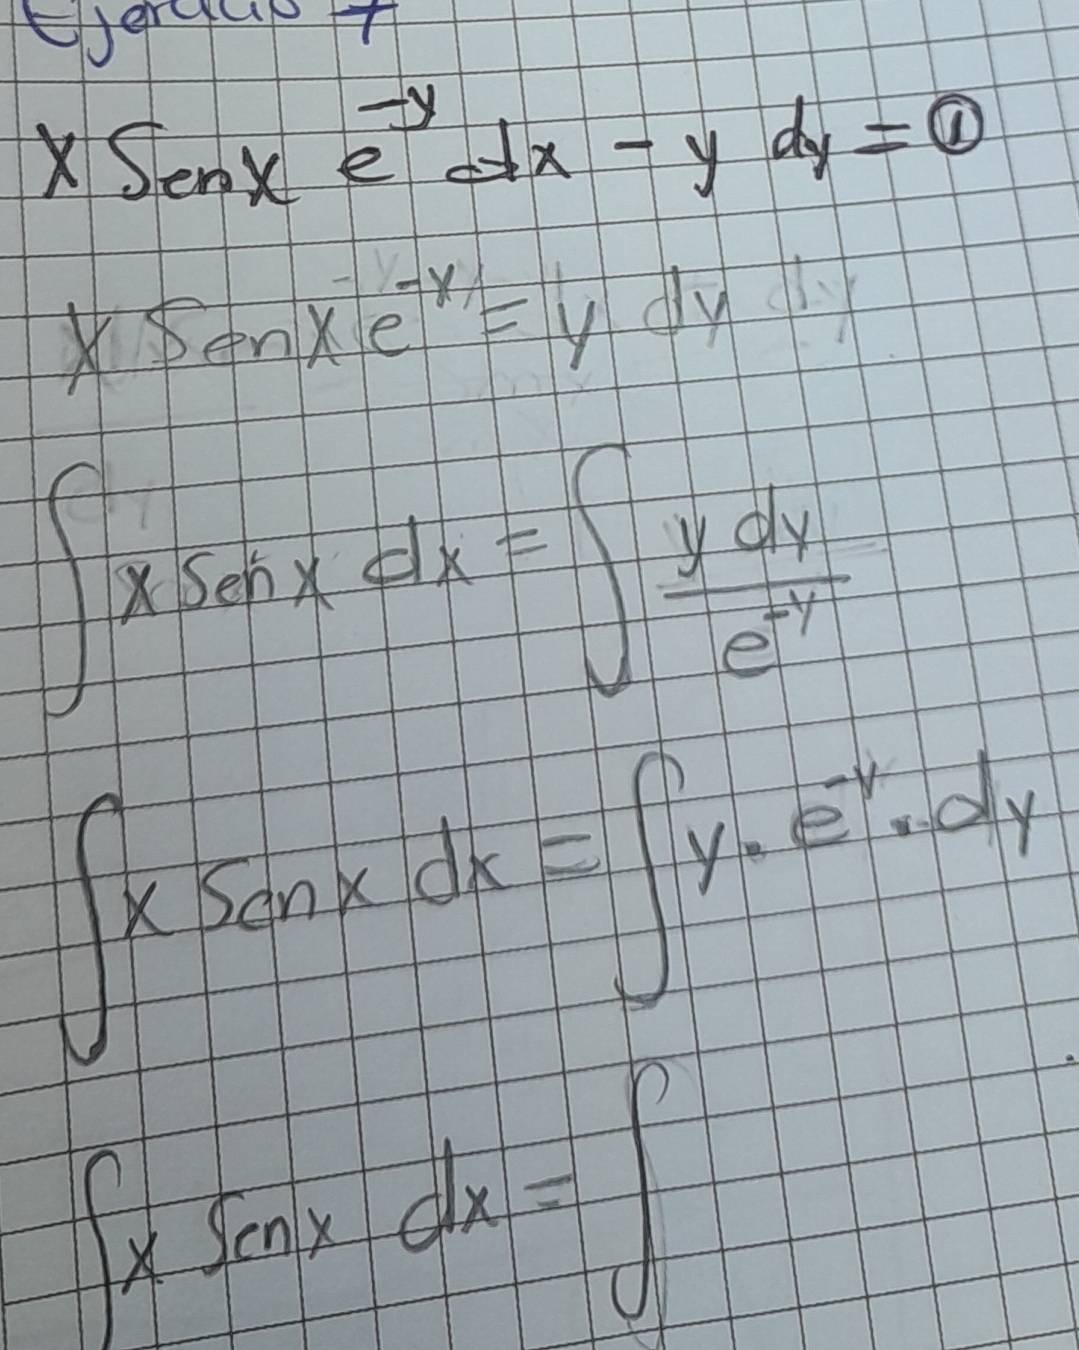 Ejercicio 7
x Sen x e^{-y} dx - y dy = ①
x Sen x e^{-x} = y dy
∫ x sen x dx = ∫ \frac{y dy}{e^{-y}}
∫ x Sen x dx = ∫ y · e^{-y} · dy
∫ x Sen x dx = ∫